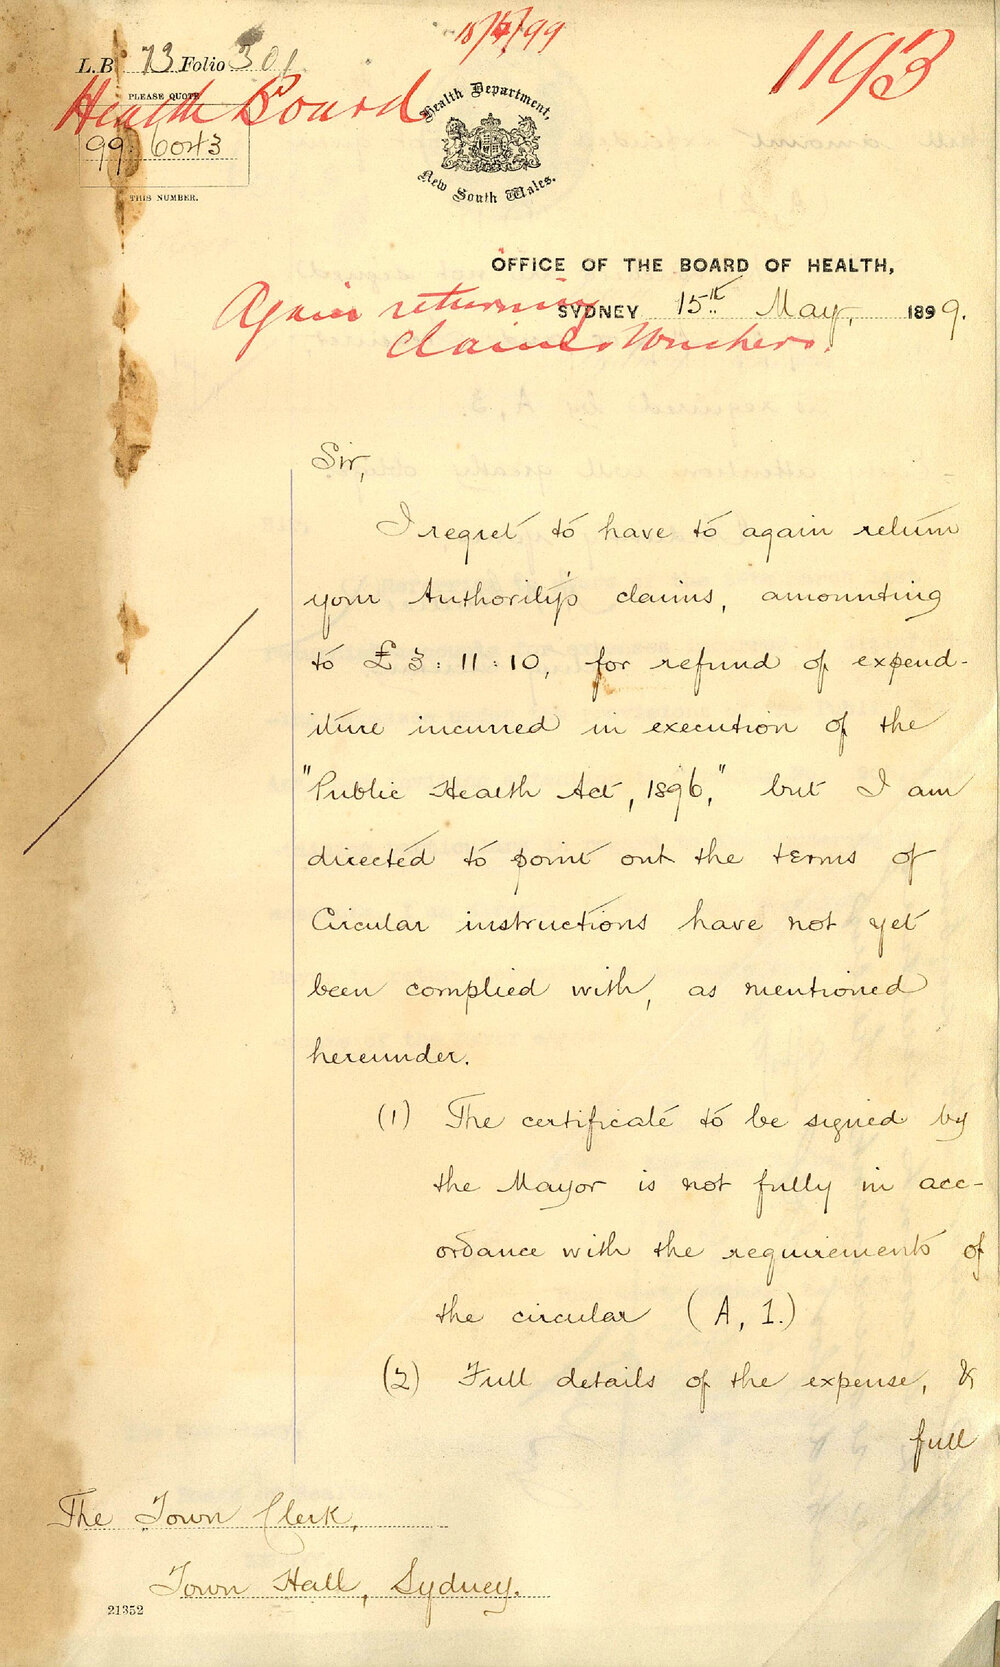 18/5/99
1193
L.B. 73 Folio 301
Health Board
PLEASE QUOTE
99 6043
THIS NUMBER.
Health Department,
New South Wales.
OFFICE OF THE BOARD OF HEALTH,
SYDNEY 15th May, 1899.
Again returning
claims Vouchers.
Sir,
I regret to have to again return
your Authority's claims, amounting
to £3:11:10, for refund of expend-
iture incurred in execution of the
"Public Health Act, 1896," but I am
directed to point out the terms of
Circular instructions have not yet
been complied with, as mentioned
hereunder.
(1) The certificate to be signed by
the Mayor is not fully in acc-
ordance with the requirements of
the circular (A, 1.)
(2) Full details of the expense, &
full
The Town Clerk,
Town Hall, Sydney.
21352